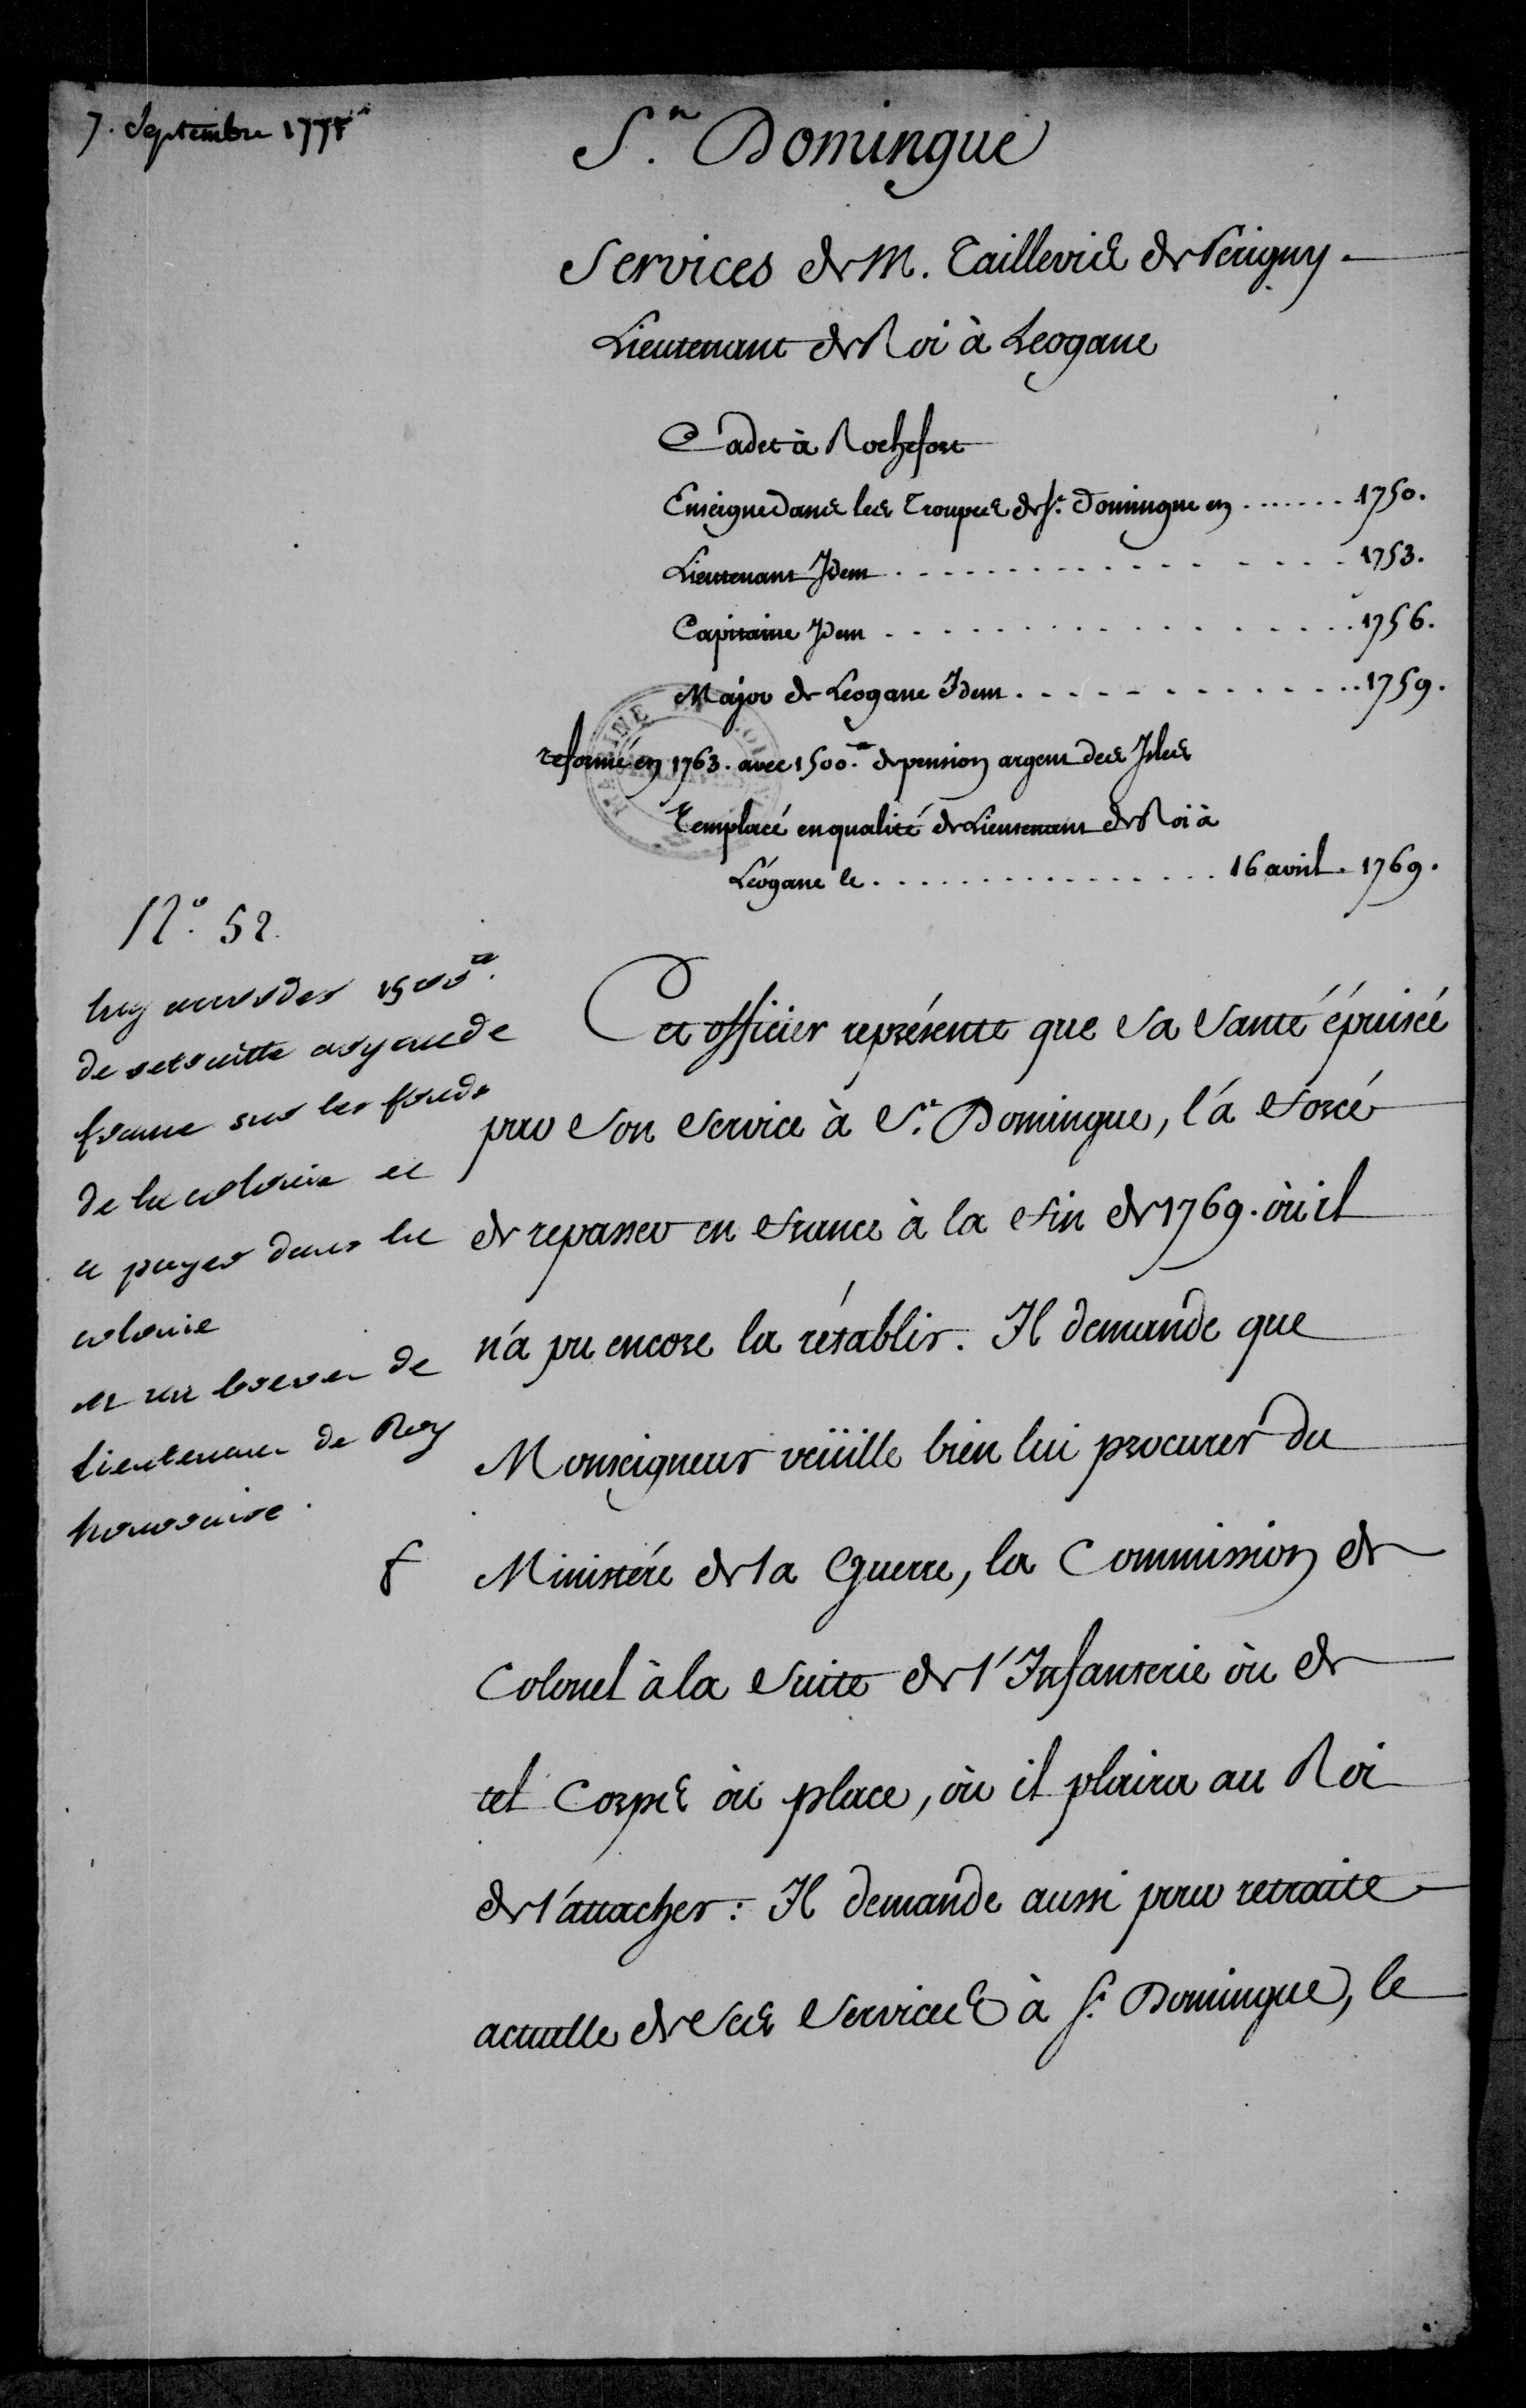 7. Septembre 177
St. Domingue
Services de M. Taillevis de Perigny.
Lieutenant de Roi à Leogane
Cadet à Rochefort
Enseigne dans les Troupes de St. Domingue en ....... 1750.
Lieutenant Idem ................ 1753.
Capitaine Idem ................ 1756.
Major de Leogane Idem ............. 1759.
reformé en 1763. avec 1500.tt de pension argent des Isles
Remplacé en qualité de Lieutenant de Roi à
Léogane le ................ 16 avril. 1769.
N.o 52.
luy accorder 1500.tt
de retraitte argent de
france sur les fonds
de la colonie et
a payer dans la
colonie
et un brevet de
Lieutenant de Roy
honoraire.
Cet officier représente que sa santé épuisée
par son service à St. Domingue, l'a forcé
de repasser en france à la fin de 1769. où il
n'a pu encore la rétablir. Il demande que
Monseigneur veüille bien lui procurer du
Ministére de la Guerre, la Commission de
Colonel à la suite de l'Infanterie où de
tel Corps où place, où il plaira au Roi
de l'attacher: Il demande aussi pour retraite
actuelle de ses services à St. Domingue, le